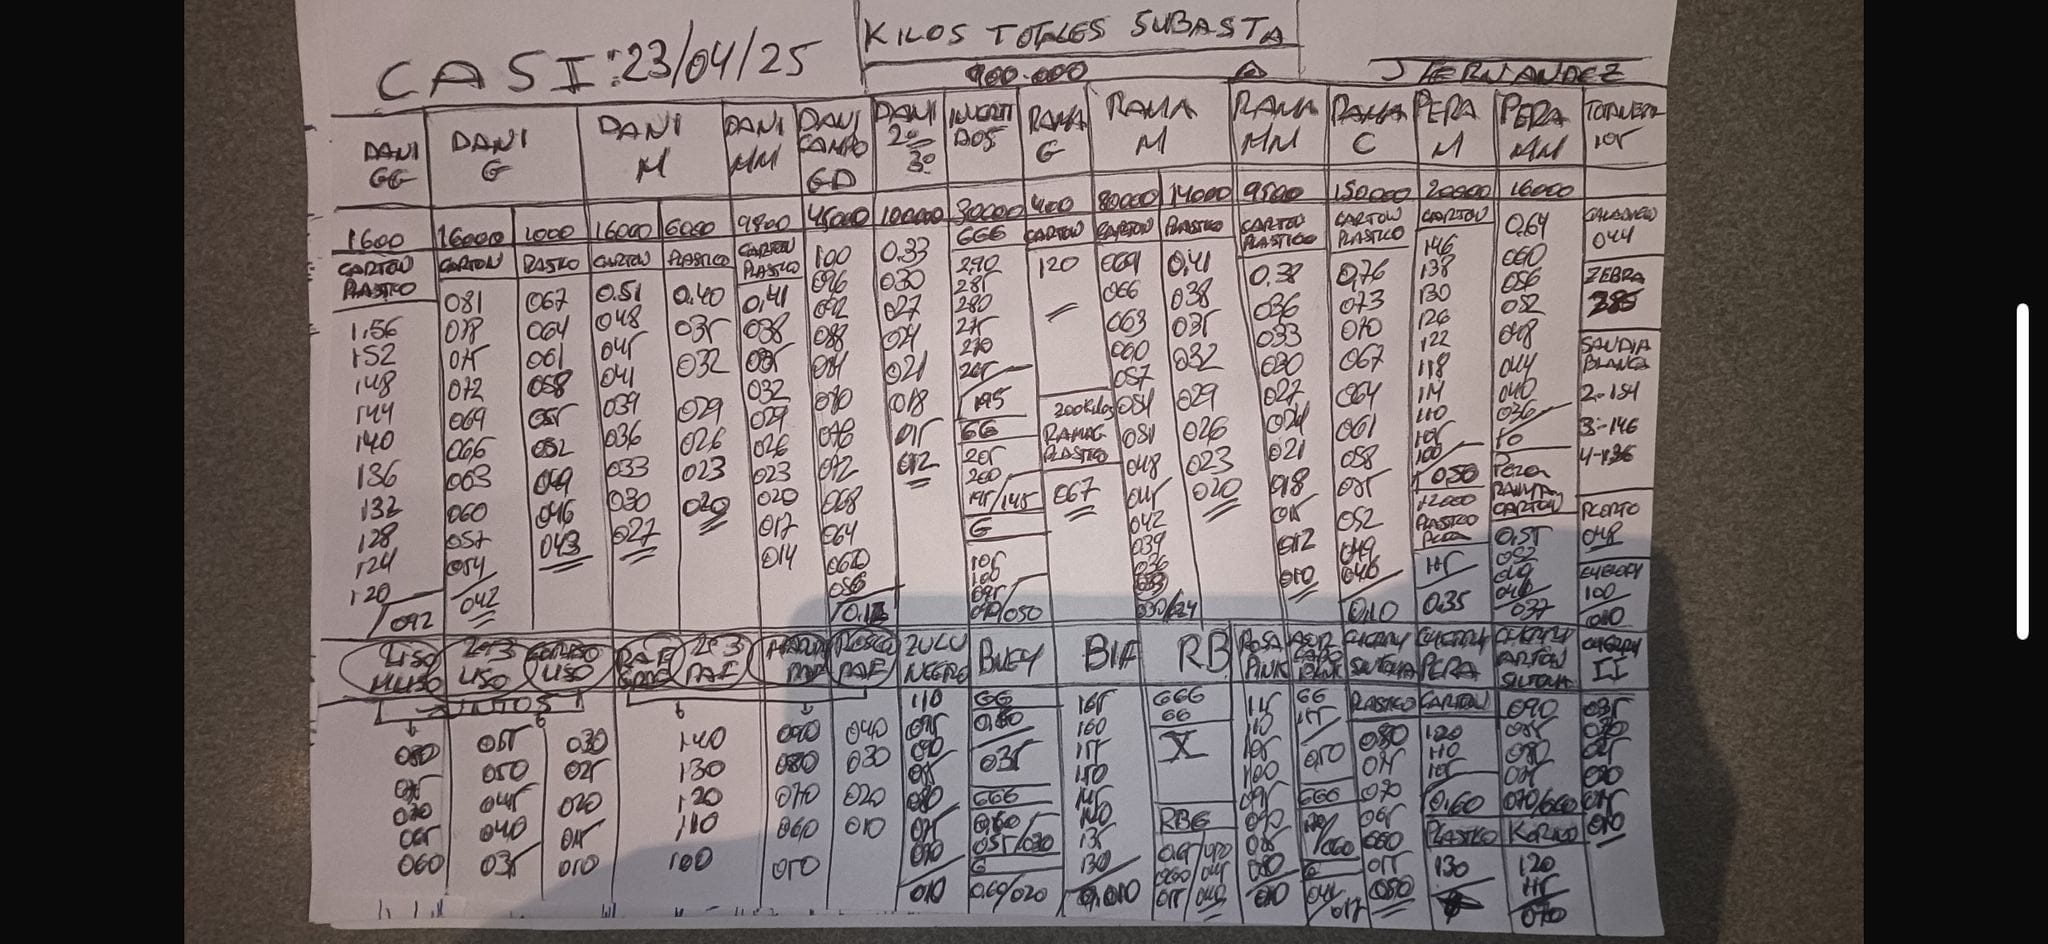 CASI: 23/04/25
KILOS TOTALES SUBASTA
900.000
J HERNANDEZ
DANI GG
DANI G
DANI M
DANI MM
DANI CAMPO GD
DANI 2º 3º
INVERTIDOS
RAMA G
RAMA M
RAMA MM
RAMA C
PERA M
PERA MM
1600
16000 1000
16000 6000
9800
45000
10000
30000
400
80000 14000
9500
150000
20000
16000
CARTON PLASTICO
1.56
152
148
144
140
136
132
128
124
120
092
CARTON
081
078
075
072
069
066
063
060
057
054
042
067
064
061
058
055
052
049
046
043
CARTON
0.51
048
045
041
039
036
033
030
027
PLASTICO
0.40
035
032
029
026
023
020
CARTON PLASTICO
0,41
038
035
032
029
026
023
020
017
014
100
096
092
088
084
080
076
072
068
064
060
056
0.33
030
027
024
021
018
015
012
666
290
285
280
275
270
265
195
66
205
200
195/145
G
105
100
095
090/050
CARTON
120
200 Kilos
RAMA G
PLASTICO
067
CARTON
069
066
063
060
057
054
051
048
045
042
039
036
033
030/024
PLASTICO
0.41
038
035
032
029
026
023
020
CARTON PLASTICO
0.38
036
033
030
027
024
021
018
015
012
010
CARTON PLASTICO
0,76
073
070
067
064
061
058
055
052
049
046
0,10
CARTON
146
138
130
126
122
118
114
110
105
100
050
12000
PLASTICO
PERA
115
0.35
0.64
060
056
052
048
044
040
036
10
PERA
RAMA
CARTON
0.55
052
049
046
037
044
ZEBRA
285
SANDIA
BLANCA
2-154
3-146
4-136
048
100
010
LISO
2º3 LISO
LISO
2º3 RAF
RAF
ZULU NEGRO
BUEY
BIF
RB
ROSA PINK
CHERRY SINTOMA
CHERRY PERA
CHERRY CARTON SINTOMA
CHERRY II
JUNTOS
080
075
070
065
060
055
050
045
040
035
030
025
020
015
010
140
130
120
110
100
090
080
070
060
050
040
030
020
010
110
095
090
085
080
075
070
010
GG
0,80
035
666
0,60
055/030
G
0.60/020
165
160
155
150
145
140
135
130
0,010
666
66
X
RBG
115
110
105
100
095
090
085
080
010
66
155
050
666
G
PLASTICO
080
075
070
065
060
055
050
CARTON
120
110
105
0,60
PLASTICO
130
090
085
080
075
070/060
120
115
070
035
030
025
020
015
010